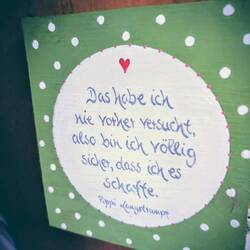 Das habe ich
nie vorher versucht,
also bin ich völlig
sicher, dass ich es
schaffe.
Pippi Langstrumpf